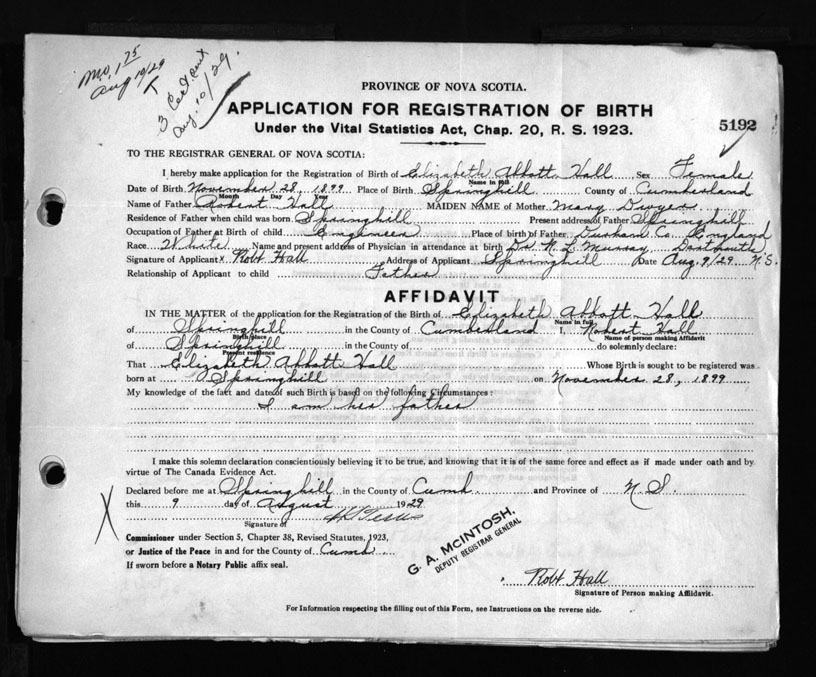 Mo. 1.75
Aug 10/29
3 Cert sent
Aug. 10/29.
PROVINCE OF NOVA SCOTIA.
APPLICATION FOR REGISTRATION OF BIRTH
Under the Vital Statistics Act, Chap. 20, R. S. 1923.
5192
TO THE REGISTRAR GENERAL OF NOVA SCOTIA:
I hereby make application for the Registration of Birth of Elizabeth Abbott Hall Sex Female
Name in full
Date of Birth November 28, 1899 Place of Birth Springhill County of Cumberland
Month Day Year
Name of Father Robert Hall MAIDEN NAME of Mother Mary Dwyer
Residence of Father when child was born Springhill Present address of Father Springhill
Occupation of Father at Birth of child Engineer Place of birth of Father Durham Co. England
Race White Name and present address of Physician in attendance at birth Dr. N. L. Murray, Dartmouth
Signature of Applicant x Robt Hall Address of Applicant Springhill Date Aug. 9/29 N.S.
Relationship of Applicant to child Father
AFFIDAVIT
IN THE MATTER of the application for the Registration of the Birth of Elizabeth Abbott Hall
Name in full
of Springhill in the County of Cumberland I, Robert Hall
Birth place Name of person making Affidavit
of Springhill do solemnly declare:
Present residence
That Elizabeth Abbott Hall Whose Birth is sought to be registered was
born at Springhill on November 28, 1899
My knowledge of the fact and date of such Birth is based on the following Circumstances:
I am her father
I make this solemn declaration conscientiously believing it to be true, and knowing that it is of the same force and effect as if made under oath and by
virtue of The Canada Evidence Act.
Declared before me at Springhill in the County of Cumb. and Province of N.S.
this 9 day of August 1929
Signature of
Commissioner under Section 5, Chapter 38, Revised Statutes, 1923,
or Justice of the Peace in and for the County of Cumb.
If sworn before a Notary Public affix seal.
G. A. McINTOSH,
DEPUTY REGISTRAR GENERAL
Robt Hall
Signature of Person making Affidavit.
For Information respecting the filling out of this Form, see Instructions on the reverse side.